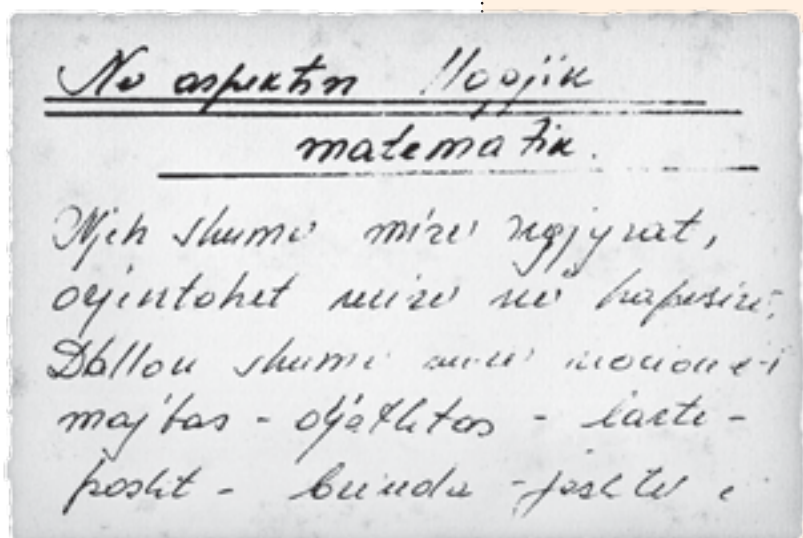 Në aspektin llogjik
matematik.
Njeh shumë mirë ngjyrat,
orjentohet mirë në hapësirë.
Dallon shumë mirë nocionet
majtas - djathtas - lartë -
posht - brënda - jashtë